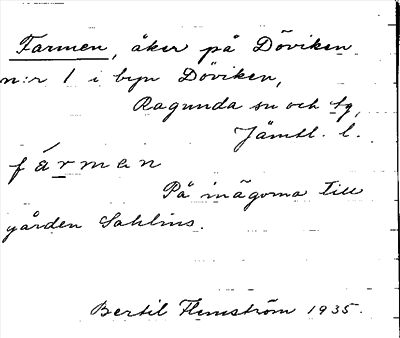 Farmen, åker på Döviken
n:r 1 i byn Döviken,
Ragunda sn och tg,
Jämtl. l.
fárman
På inägorna till
gården Sahlins.
Bertil Flemström 1935.